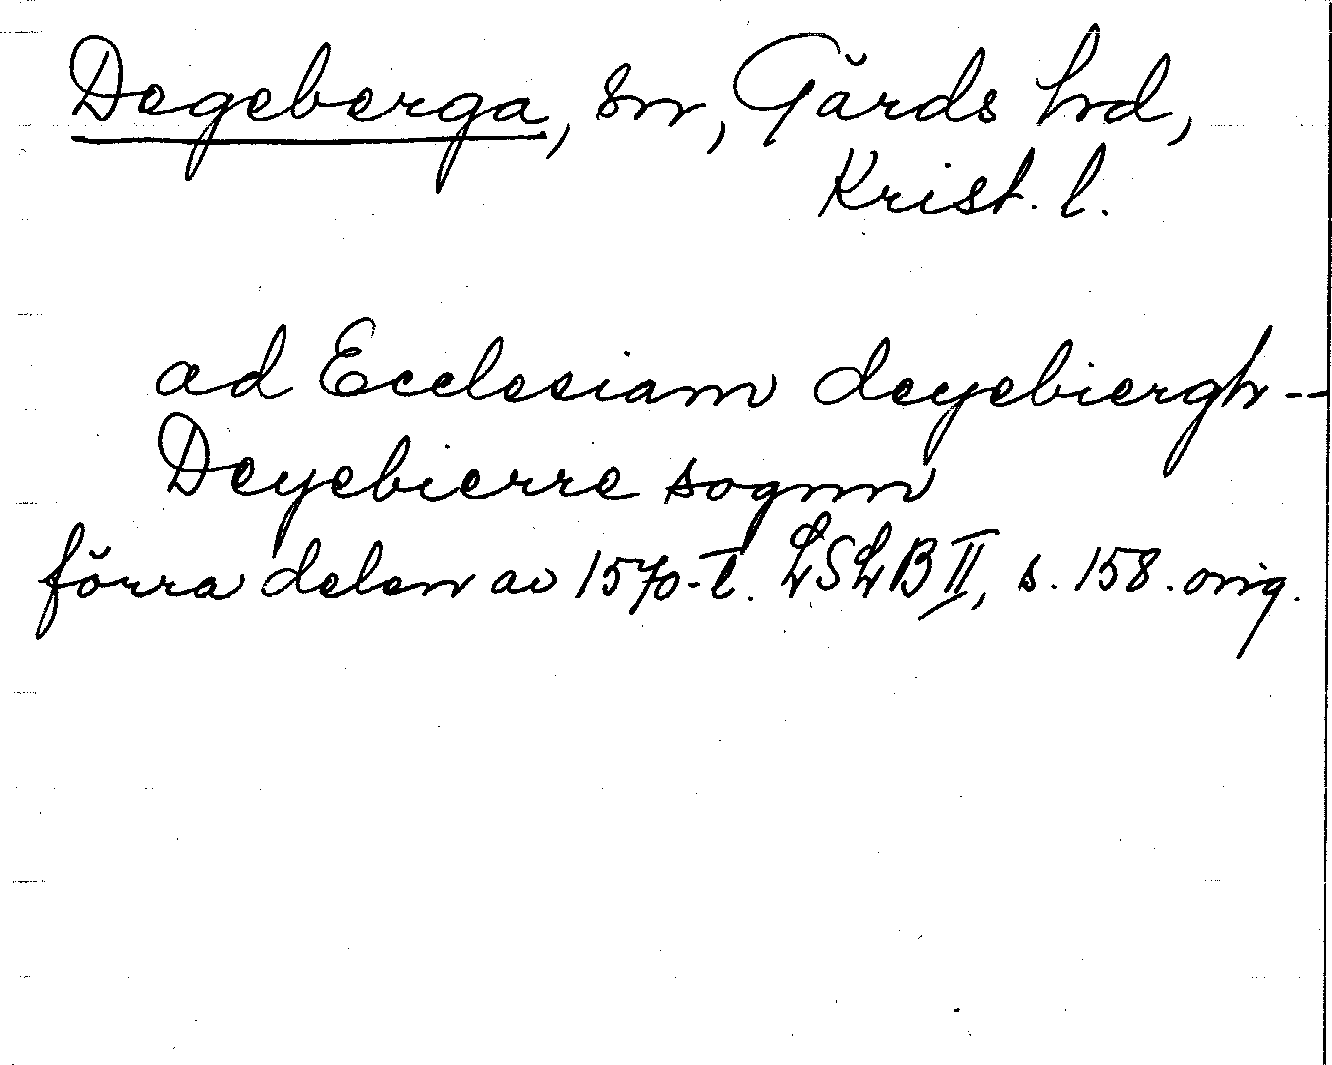 Degeberga, sn, Gärds hrd,
Krist. l.
ad Ecclesiam deyebiergh --
Deyebierre sognn
förra delen av 1570-t. LSLB II, s. 158. orig.